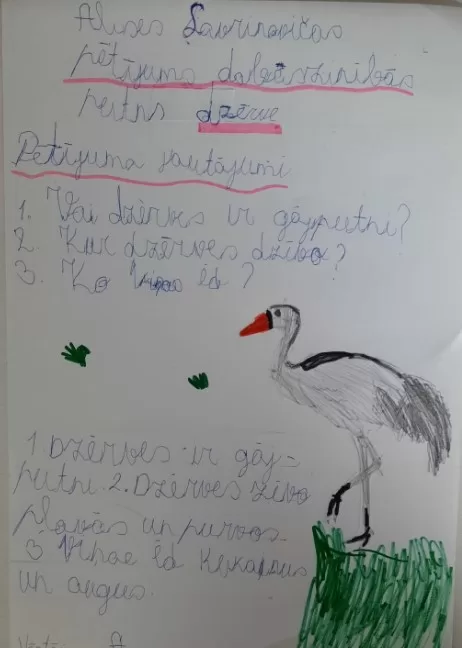 Alises Lavrinovičas
pētījums dabaszinībās
putns dzērve
Pētījuma jautājumi
1. Vai dzērves ir gājputni?
2. Kur dzērves dzīvo?
3. Ko ēd?
1 Dzērves ir gāj=
putni. 2. Dzērves zivo
plavās un purvos.
3 Viņas ēd kukaiņus
un augus.